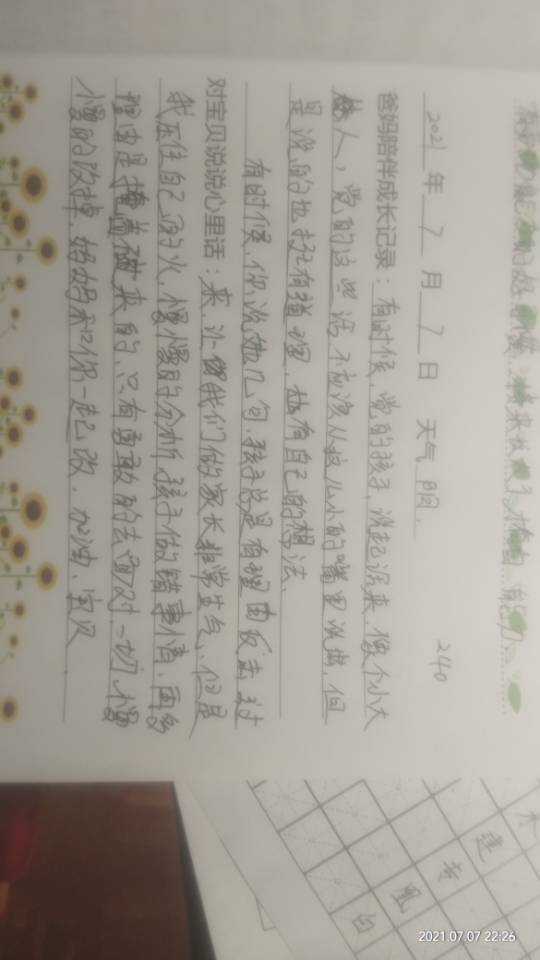 2021年7月7日 天气 阴.
240
爸妈陪伴成长记录:有时候,觉的孩子,说起话来,像个小大
人,觉的这些话不应该从这么小的嘴里说出,但
是说的也挺有道理,也有自己的想法、
有时候,你说她几句,孩子总是有理由反击,对
对宝贝说说心里话:来,让我们做家长非常生气,但是
我压住自己的火,慢慢的分析孩子做错事情,因为
理由是掩盖出来的,只有勇敢的去面对一切,慢
慢的改掉,妈妈和你一起改,加油,宝贝
未
建
黄
凰
白
2021.07.07 22:26